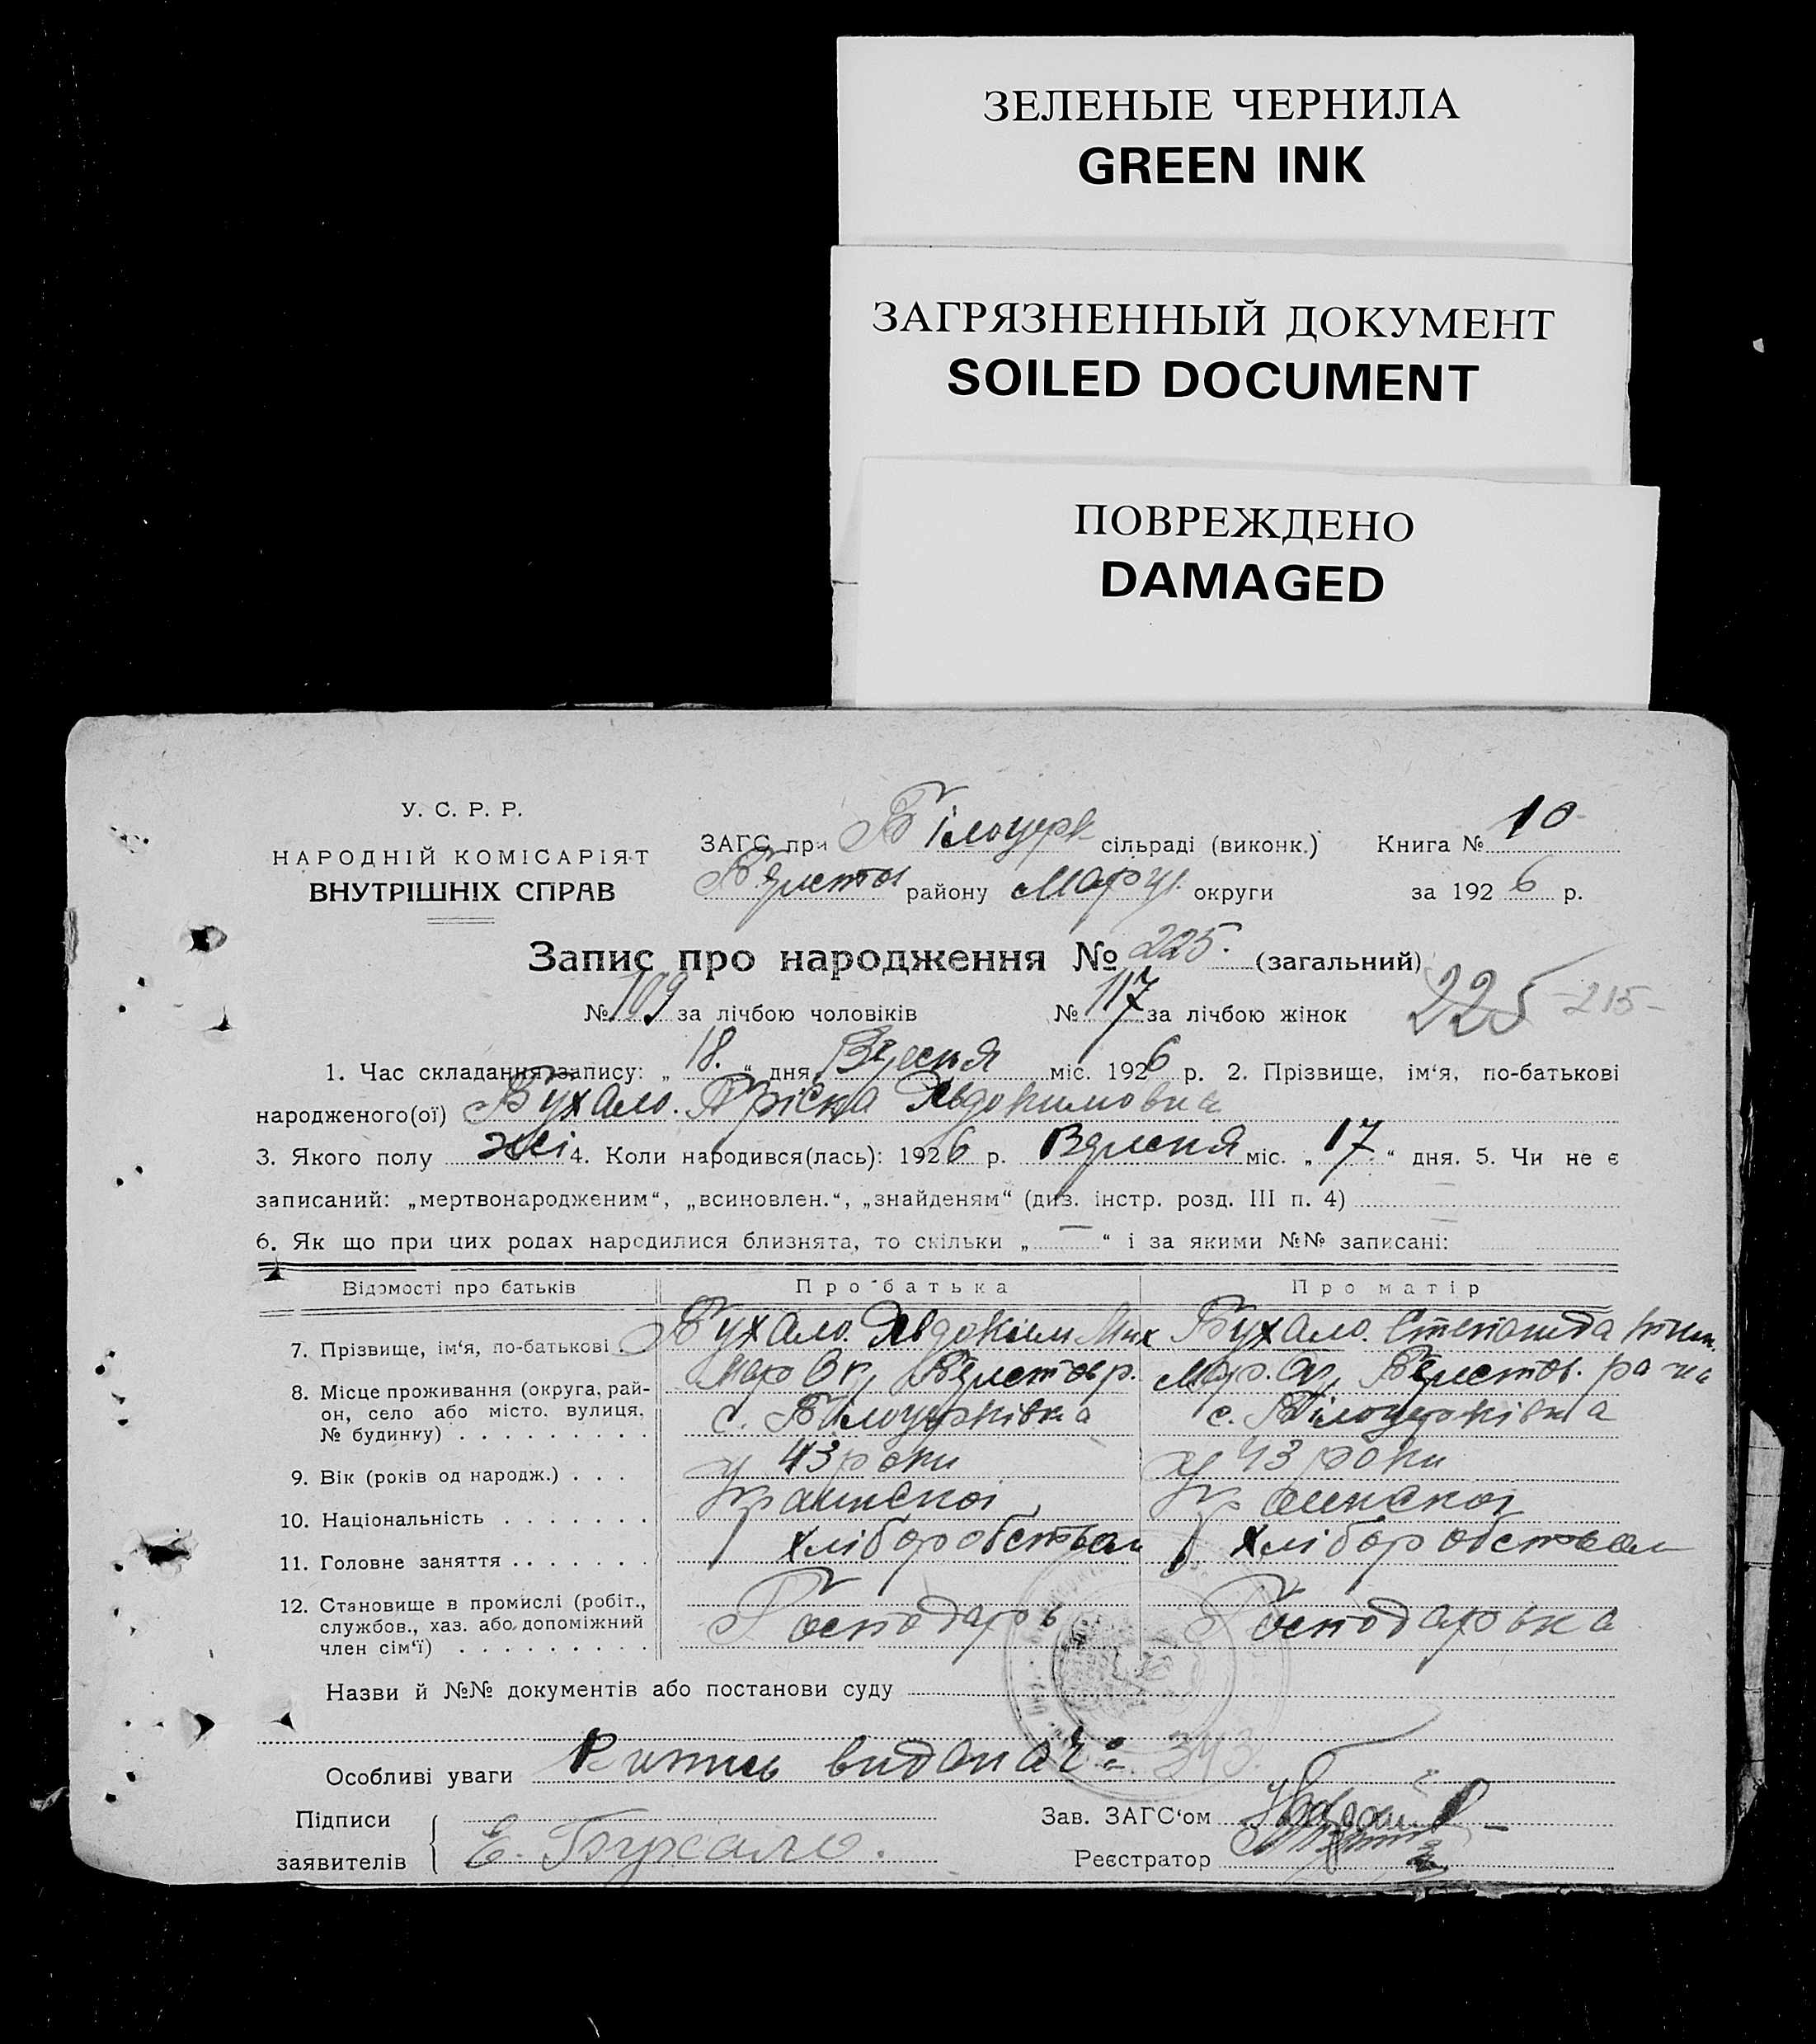 ЗЕЛЕНЫЕ ЧЕРНИЛА
GREEN INK
ЗАГРЯЗНЕННЫЙ ДОКУМЕНТ
SOILED DOCUMENT
ПОВРЕЖДЕНО
DAMAGED
У. С. Р. Р.
НАРОДНІЙ КОМІСАРІЯТ
ВНУТРІШНІХ СПРАВ
ЗАГС при Білоцерк сільраді (виконк.) Книга № 10
району Маріу. округи за 1926 р.
Запис про народження № 225. (загальний)
№ 109 за лічбою чоловіків № 117 за лічбою жінок 225 -215-
1. Час складання запису: „ 18. “ дня Вересня міс. 1926 р. 2. Прізвище, ім‘я, по-батькові
народженого(ої) Бухало. Явдокимовна
3. Якого полу жі 4. Коли народився(лась): 1926 р. Вересня міс. „ 17 “ дня. 5. Чи не є
записаний: „мертвонародженим“, „всиновлен.“, „знайденям“ (див. інстр. розд. III п. 4)
6. Як що при цих родах народилися близнята, то скільки „ — “ і за якими №№ записані:
Відомості про батьків Про батька Про матір
7. Прізвище, ім‘я, по-батькові . Бухало. Явдоким Мих Бухало.
8. Місце проживання (округа, рай-
он, село або місто, вулиця,
№ будинку) . . . . . . . . . с. Білоцерківка с. Білоцерківка
9. Вік (років од народж.) . . . 43 роки 43 роки
10. Національність . . . . . . . Українскоі Українскоі
11. Головне заняття . . . . . . хліборобством хліборобством
12. Становище в промислі (робіт.,
службов., хаз. або допоміжний
член сім‘ї) . . . . . . . . . Господарь Господарька
Назви й №№ документів або постанови суду
Особливі уваги видана 343.
Підписи
заявителів Е. Бухало.
Зав. ЗАГС‘ом
Реєстратор